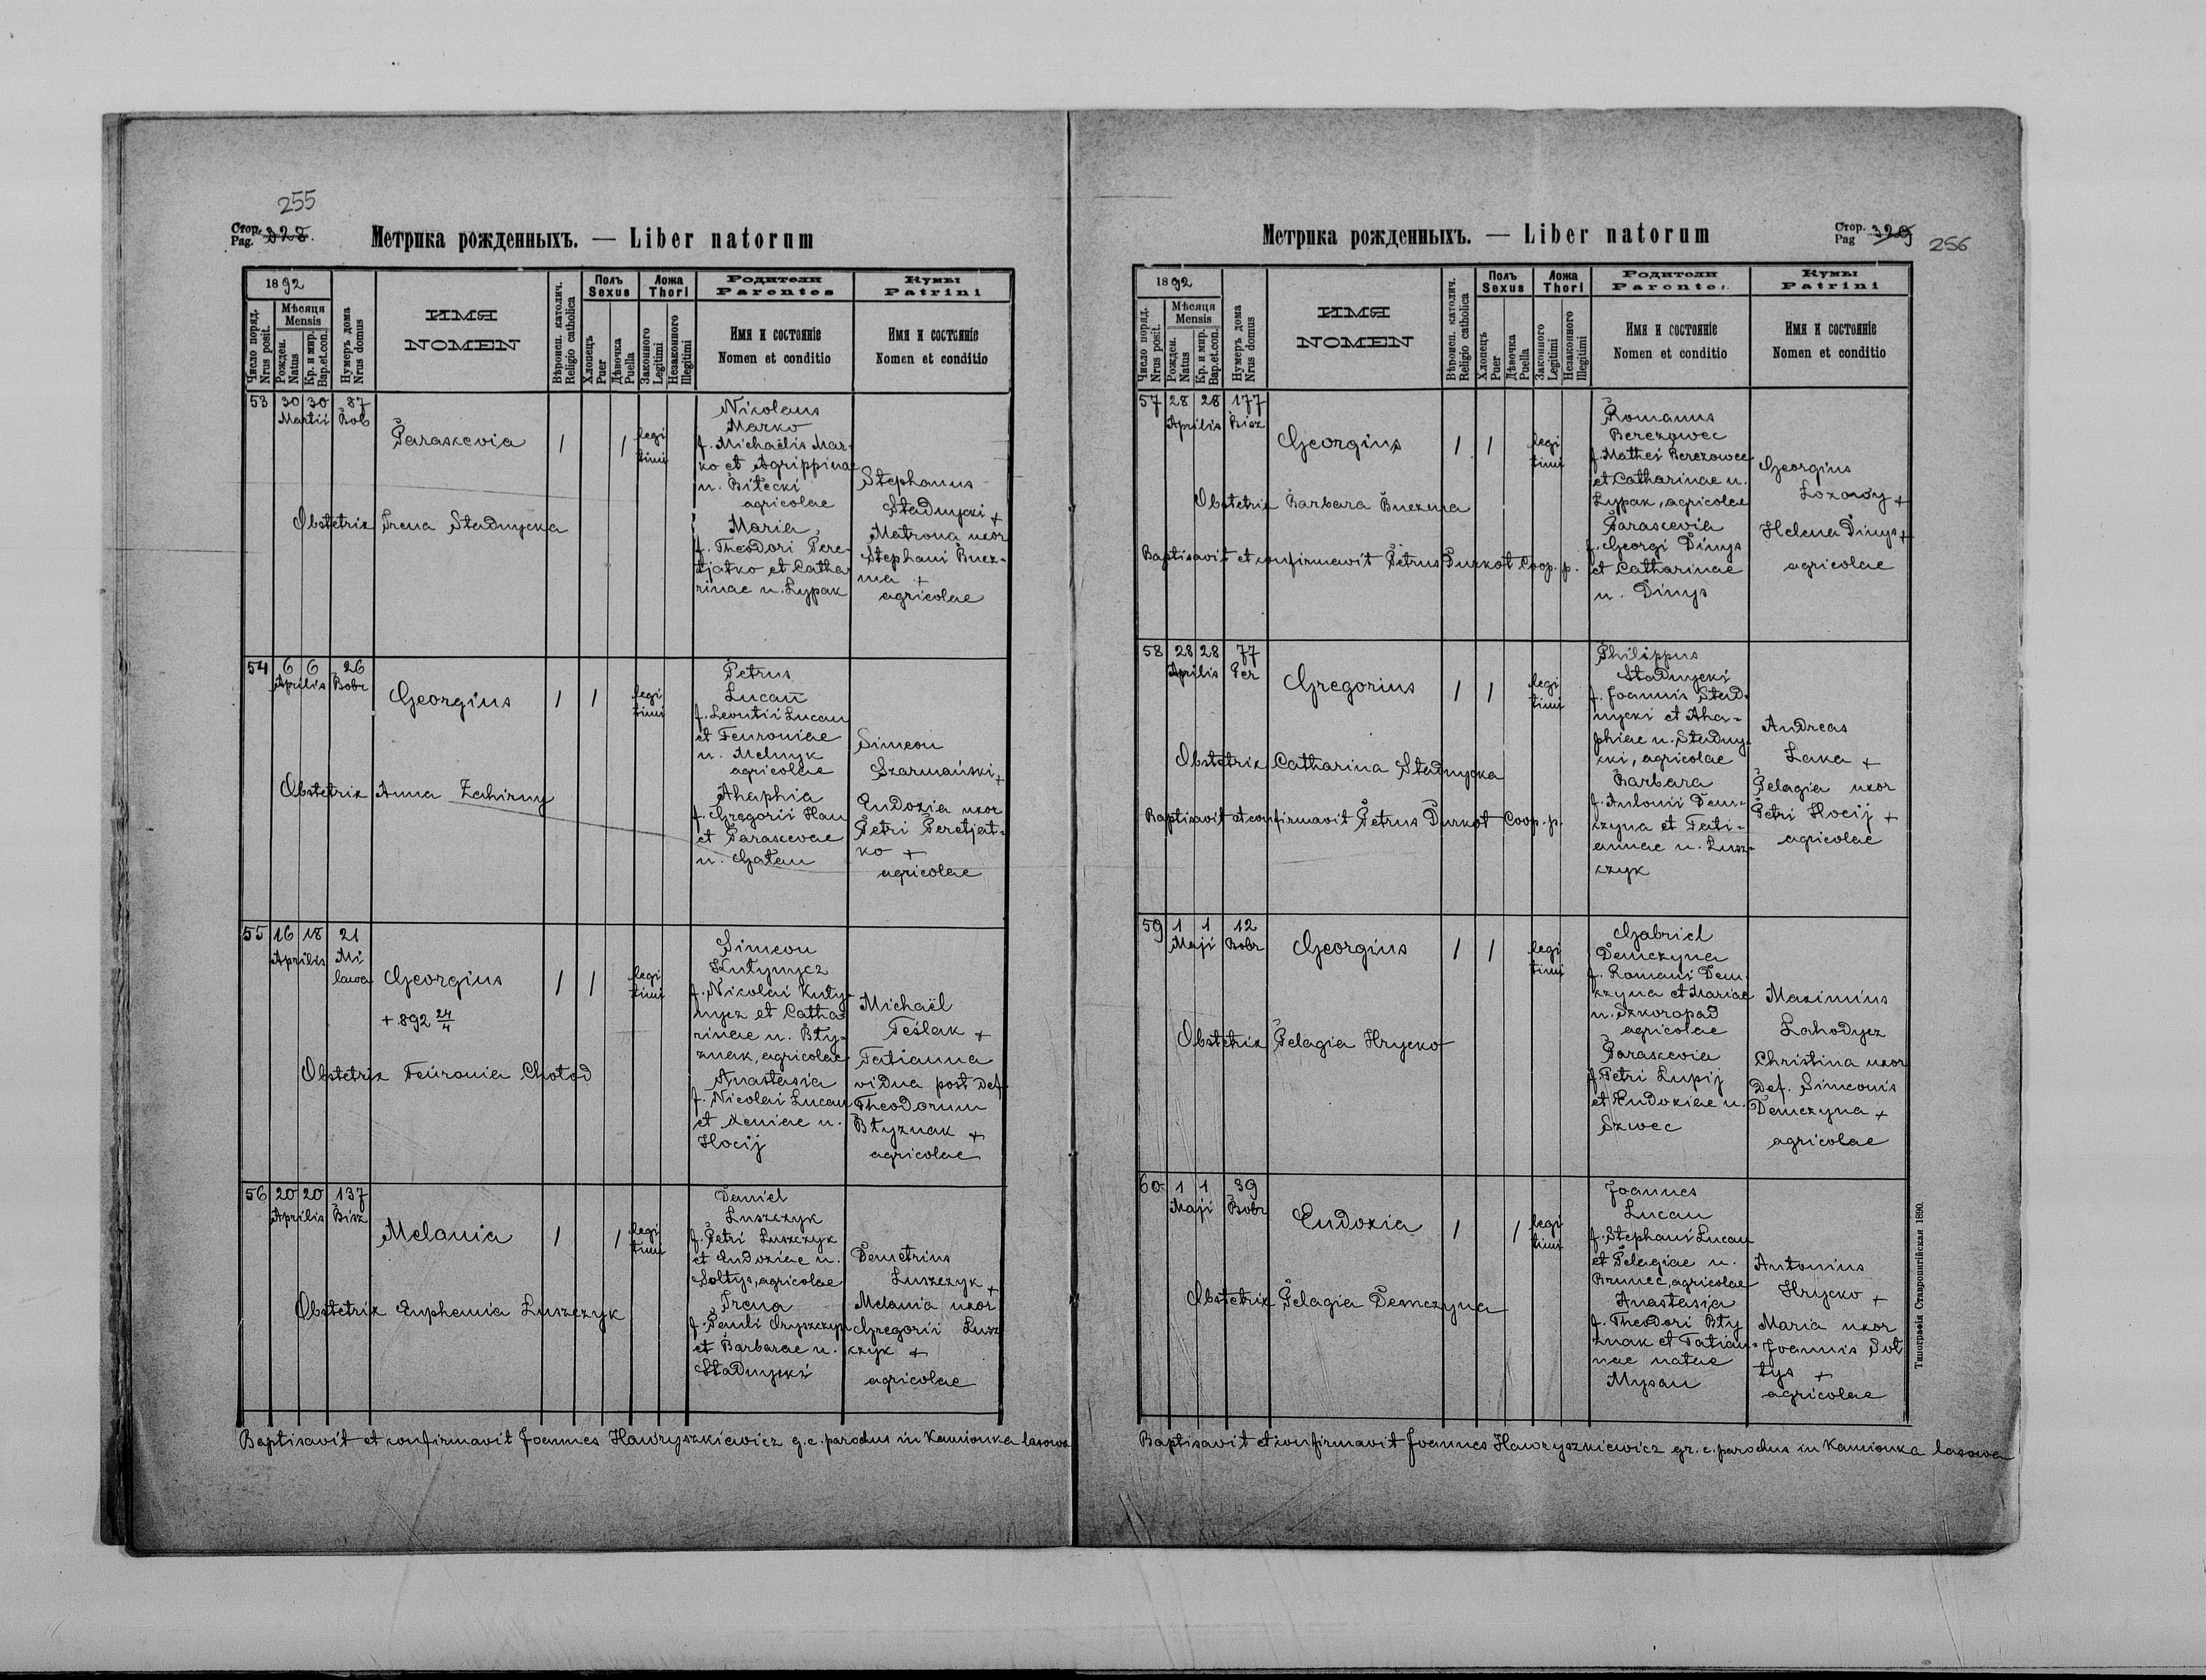 255
Стор.
Pag. 328.
Метрика рожденныхъ. — Liber natorum
1892
Число поряд.
Nrus posit.
Мѣсяця
Mensis
Рожден.
Natus
Кр. и мир.
Bap.et.con.
Нумеръ дома
Nrus domus
ИМЯ
NOMEN
Вѣроисп. католич.
Religio catholica
Полъ
Sexus
Хлопецъ
Puer
Дѣвочка
Puella
Ложа
Thori
Законного
Legitimi
Незаконного
Illegitimi
Родители
Parentes
Имя и состояніе
Nomen et conditio
Кумы
Patrini
Имя и состояніе
Nomen et conditio
53 30 30 87
Martii Bob
Paraskevia 1 1 legi
timi
Obstetrix Irena Stadnycka
Nicolaus
Marko
f. Michaëlis Mar-
ko et Agrippinae
n. Bitecki
agricolae
Maria
f. Theodori Pere-
tjatko et Catha
rinae n. Lypak
Stephanus
Stadnycki +
Matrona uxor
Stephani Bucz-
ma +
agricolae
54 6 6 26
Aprilis Bobr
Georgius 1 1 legi
timi
Obstetrix Anna Zahirny
Petrus
Lucan
f. Leontii Lucan
et Feuroniae
n. Melnyk
agricolae
Ahaphia
f. Gregorii Hau
et Parascevae
n. Gatan
Simeon
Szarmański +
Eudoxia uxor
Petri Peretjat-
ko +
agricolae
55 16 18 21
Aprilis Mi
lawa
Georgius 1 1 legi
timi
+ 892 24/4
Obstetrix Feuronia Chotod
Simeon
Kutynycz
f. Nicolai Kuty-
nycz et Catha-
rinae n. Bty-
znak, agricolae
Anastasia
f. Nicolai Lucan
et Xeniae n.
Hocij
Michaël
Teslak +
Tatianna
vidua post def.
Theodorum
Btyznak +
agricolae
56 20 20 137
Aprilis Bisz
Melania 1 1 legi
timi
Obstetrix Euphemia Luszczyk
Daniel
Luszczyk
f. Petri Luszczyk
et Eudoxiae n.
Soltys, agricolae
Irena
f. Pauli Oryszczyn
et Barbarae n.
Stadnycki
Demetrius
Luszczyk +
Melania uxor
Gregorii Lusz
czyk +
agricolae
Baptisavit et confirmavit Joannes Hawryszkiewicz g.c. parochus in Kamionka lasowa
Метрика рожденныхъ. — Liber natorum
Стор.
Pag 329
256
1892
Число поряд.
Nrus posit.
Мѣсяця
Mensis
Рожден.
Natus
Кр. и мир.
Bap.et.con.
Нумеръ дома
Nrus domus
ИМЯ
NOMEN
Вѣроисп. католич.
Religio catholica
Полъ
Sexus
Хлопецъ
Puer
Дѣвочка
Puella
Ложа
Thori
Законного
Legitimi
Незаконного
Illegitimi
Родители
Parentes
Имя и состояніе
Nomen et conditio
Кумы
Patrini
Имя и состояніе
Nomen et conditio
57 28 28 177
Aprilis Bisz
Georgius 1 1 legi
timi
Obstetrix Barbara Buczma
Baptisavit et confirmavit Petrus Durkot Coop. p.
Romanus
Berezowec
f. Mathei Berezowec
et Catharinae n.
Lypak, agricolae
Paraskevia
f. Georgi Dinys
et Catharinae
n. Dinys
Georgius
Lozowy +
Helena Dinys +
agricolae
58 28 28 77
Aprilis Per
Gregorius 1 1 legi
timi
Obstetrix Catharina Stadnycka
Baptisavit et confirmavit Petrus Durkot Coop. p.
Philippus
Stadnycki
f. Joannis Stad-
nycki et Aha-
phiae n. Stadny-
cki, agricolae
Barbara
f. Antonii Dem-
czyna et Tati-
annae n. Lusz-
czyk
Andreas
Laka +
Pelagia uxor
Petri Hocij +
agricolae
59 1 1 12
Maji Bobr
Georgius 1 1 legi
timi
Obstetrix Pelagia Hrycko
Gabriel
Demczyna
f. Romani Dem
czyna et Mariae
n. Szkoropad
agricolae
Paraskevia
f. Petri Lupij
et Eudoxiae n.
Szwec
Maximius
Lahodycz
Christina uxor
def. Simeonis
Demczyna +
agricolae
60 1 1 39
Maji Bobr
Eudoxia 1 1 legi
timi
Obstetrix Pelagia Demczyna
Joannes
Lucan
f. Stephani Lucan
et Pelagiae n.
Brunec, agricolae
Anastasia
f. Theodori Bty
znak et Tatian-
nae natae
Mysan
Antonius
Hrycko +
Maria uxor
Joannis Sol
tys +
agricolae
Baptisavit et confirmavit Joannes Hawryszkiewicz gr. c. parochus in Kamionka lasowa
Типографія Ставропигійская 1890.